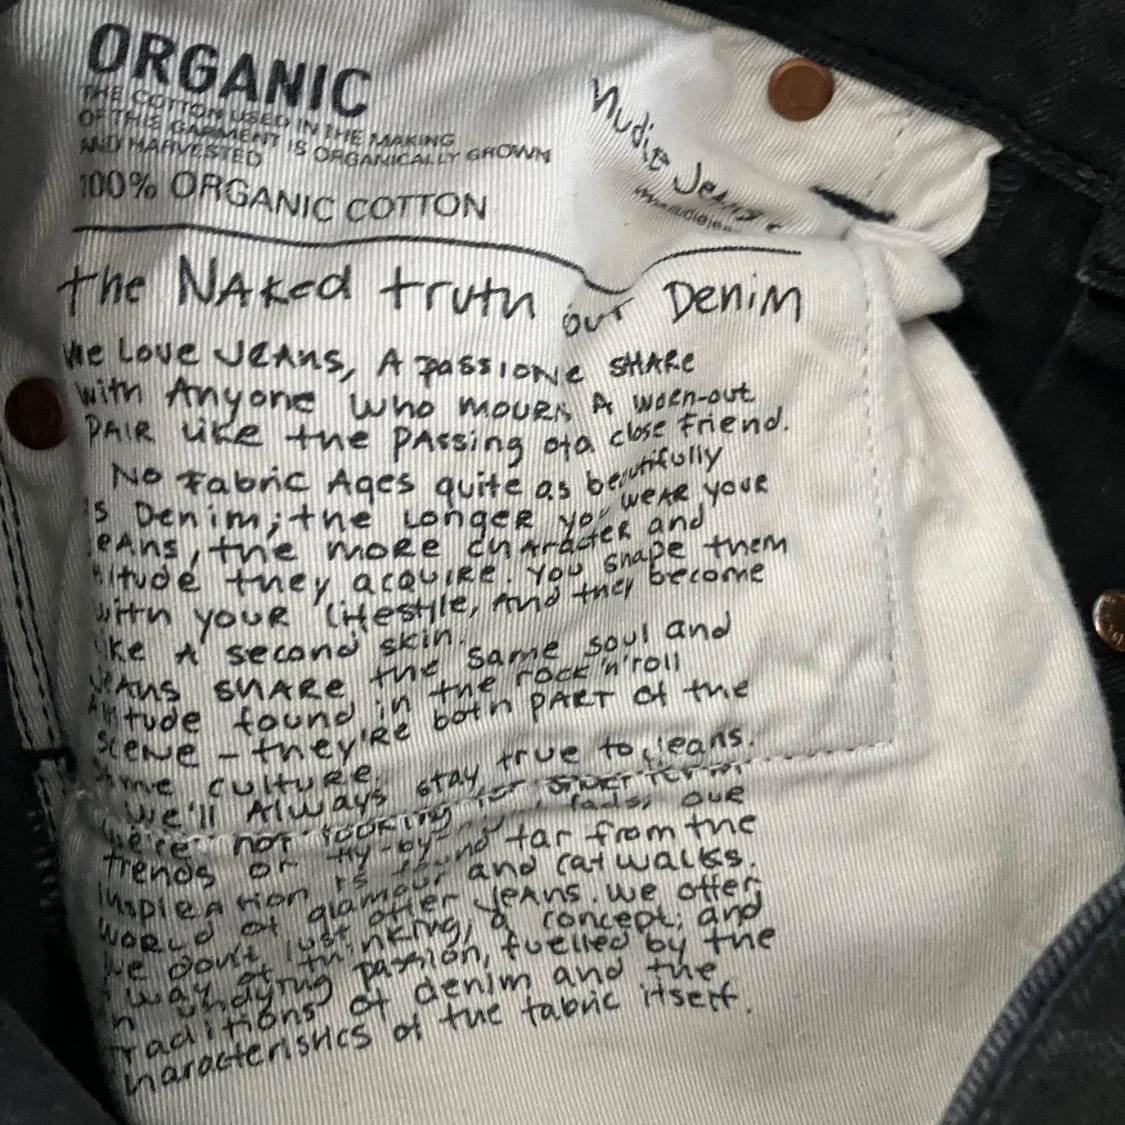 ORGANIC
THE COTTON USED IN THE MAKING
OF THIS GARMENT IS ORGANICALLY GROWN
AND HARVESTED
100% ORGANIC COTTON
Nudie Jeans
the NAked truth our Denim
We Love JEANS, A passione SHARE
with Anyone who mourn A worn-out
PAIR like the PAssing of a close Friend.
No Fabric Ages quite as beautifully
s Denim; the Longer you wear your
eans, the more character and
itude they acquire. You shape them
with your lifestyle, And they become
ike A second skin.
JEANS SHARE the same soul and
titude found in the rock'n'roll
scene - they're both PART of the
me culture.
We'll Always stay true to jeans.
We're not looking for short term
trends or fly-by- fads, our
inspiration is found far from the
world of glamour and catwalks.
We don't just offer jeans. we offer
way of thinking, a concept; and
n undying passion, fuelled by the
traditions of denim and the
haracteristics of the fabric itself.